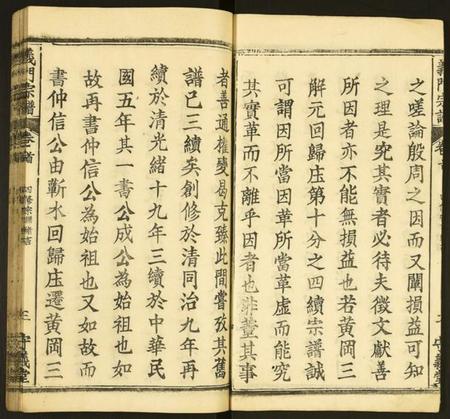 義門宗譜
卷首
之嗟論殷周之因而又闡損益可知
之理是究其實者必待夫徵文獻善
所因者亦不能無損益也若黄岡三
解元回歸庄第十分之四續宗譜誠
可謂因所當因革所當革虛而能究
其實革而不離乎因者也非董其事
者善通權變曷克臻此間嘗孜其舊
譜已三續矣創修於清同治九年再
續於清光緒十九年三續於中華民
國五年其一書公成公為始祖也如
故再書仲信公為始祖也又如故而
書仲信公由蘄水回歸庄遷黄岡三
義門宗譜
卷首
三
守義堂